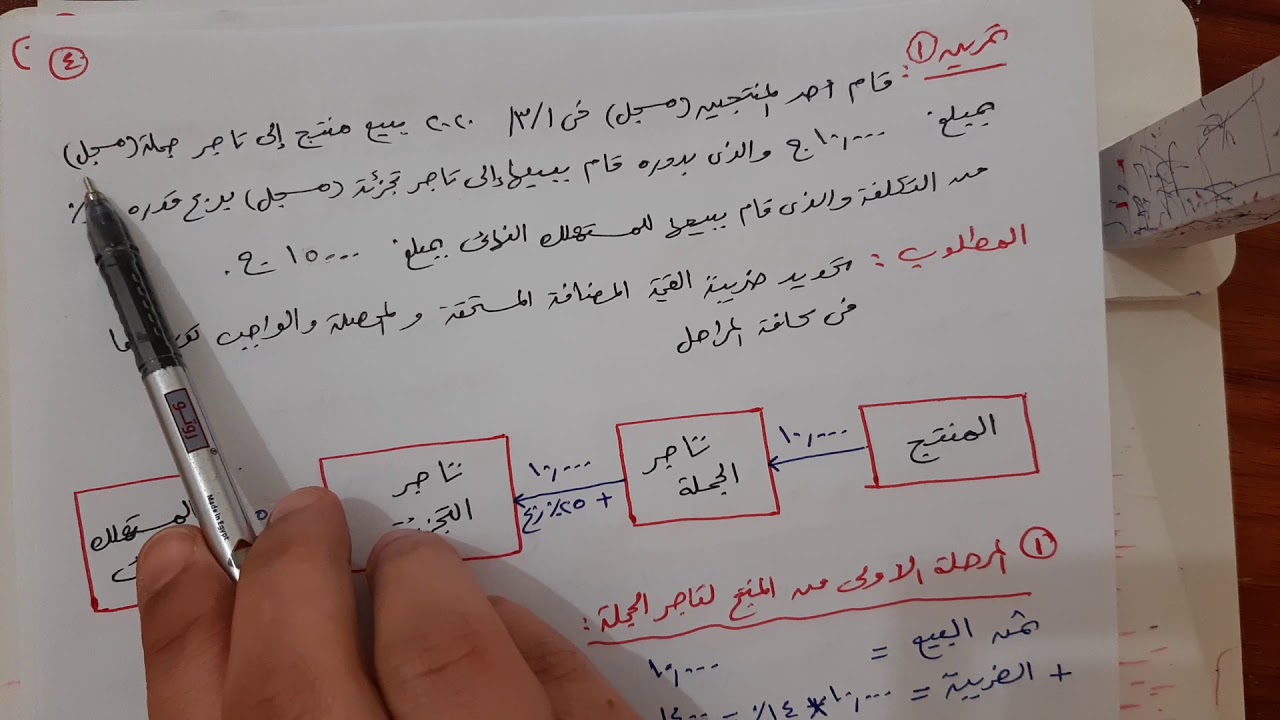 ٤
تمرين ①:
قام احد المنتجين (مسجل) فى ١/٣/ ٢٠٢٠ ببيع منتج إلى تاجر جملة (مسجل)
بمبلغ ١٠,٠٠٠ ج والذى بدوره قام ببيعها إلى تاجر تجزئة (مسجل) بربح قدره ٪
من التكلفة والذى قام ببيعها للمستهلك النهائى بمبلغ ١٥٠٠٠ ج.
المطلوب: تحديد ضريبة القيمة المضافة المستحقة والمحصلة والواجب
فى كافة المراحل
المنتج
١٠,٠٠٠
تاجر الجملة
١٠,٠٠٠
+ ٢٥٪ ربح
تاجر
المستهلك
① المرحلة الاولى من المنتج لتاجر الجملة:
ثمن البيع = ١٠,٠٠٠
+ الضريبة = ١٠,٠٠٠ * ١٤٪ = ١٤٠٠
روتو
Made in Egypt